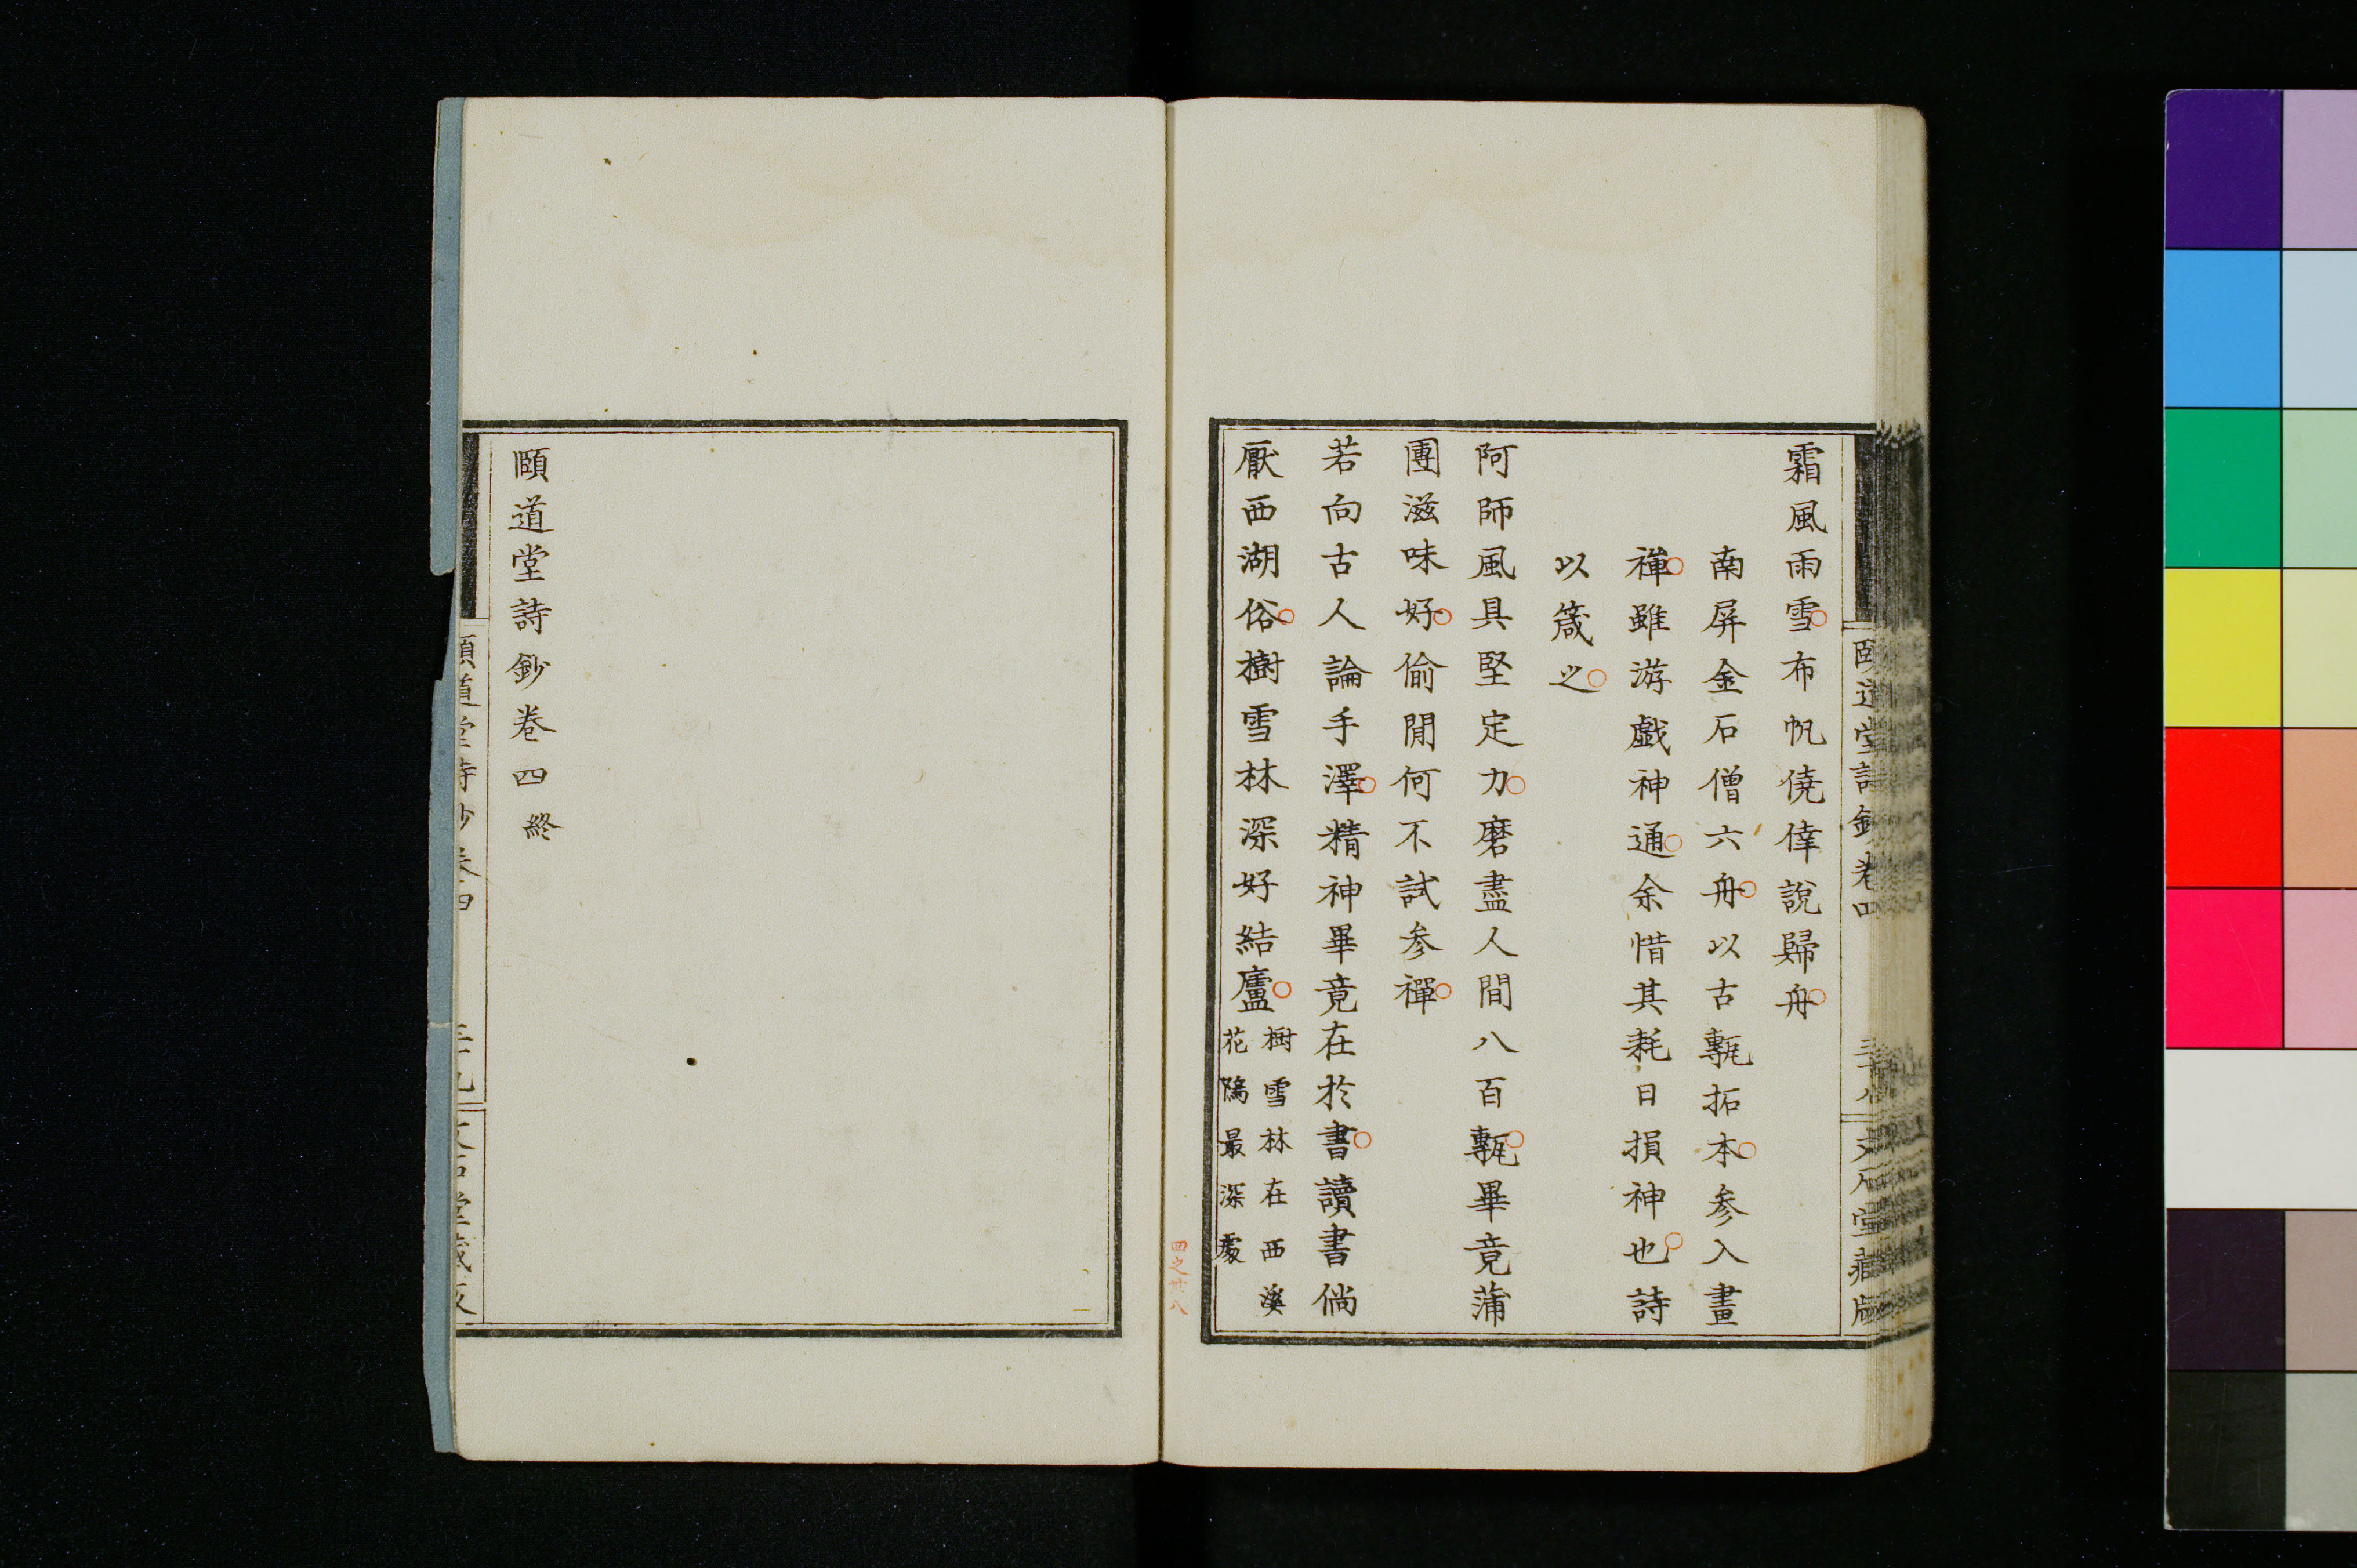 霜風雨雪布帆僥倖說歸舟
南屏金石僧六舟以古甎拓本参入畫
禪雖游戲神通余惜其耗日損神也詩
以箴之
阿師風具堅定力磨盡人間八百甎畢竟蒲
團滋味好偷閒何不試参禪
若向古人論手澤精神畢竟在於書讀書倘
厭西湖俗樹雪林深好結廬
樹雪林在西溪
花隖最深處
頤道堂詩鈔卷四
三十八
文石堂藏版
四之卅八
頤道堂詩鈔卷四終
頤道堂詩鈔卷四
三十九
文石堂藏版